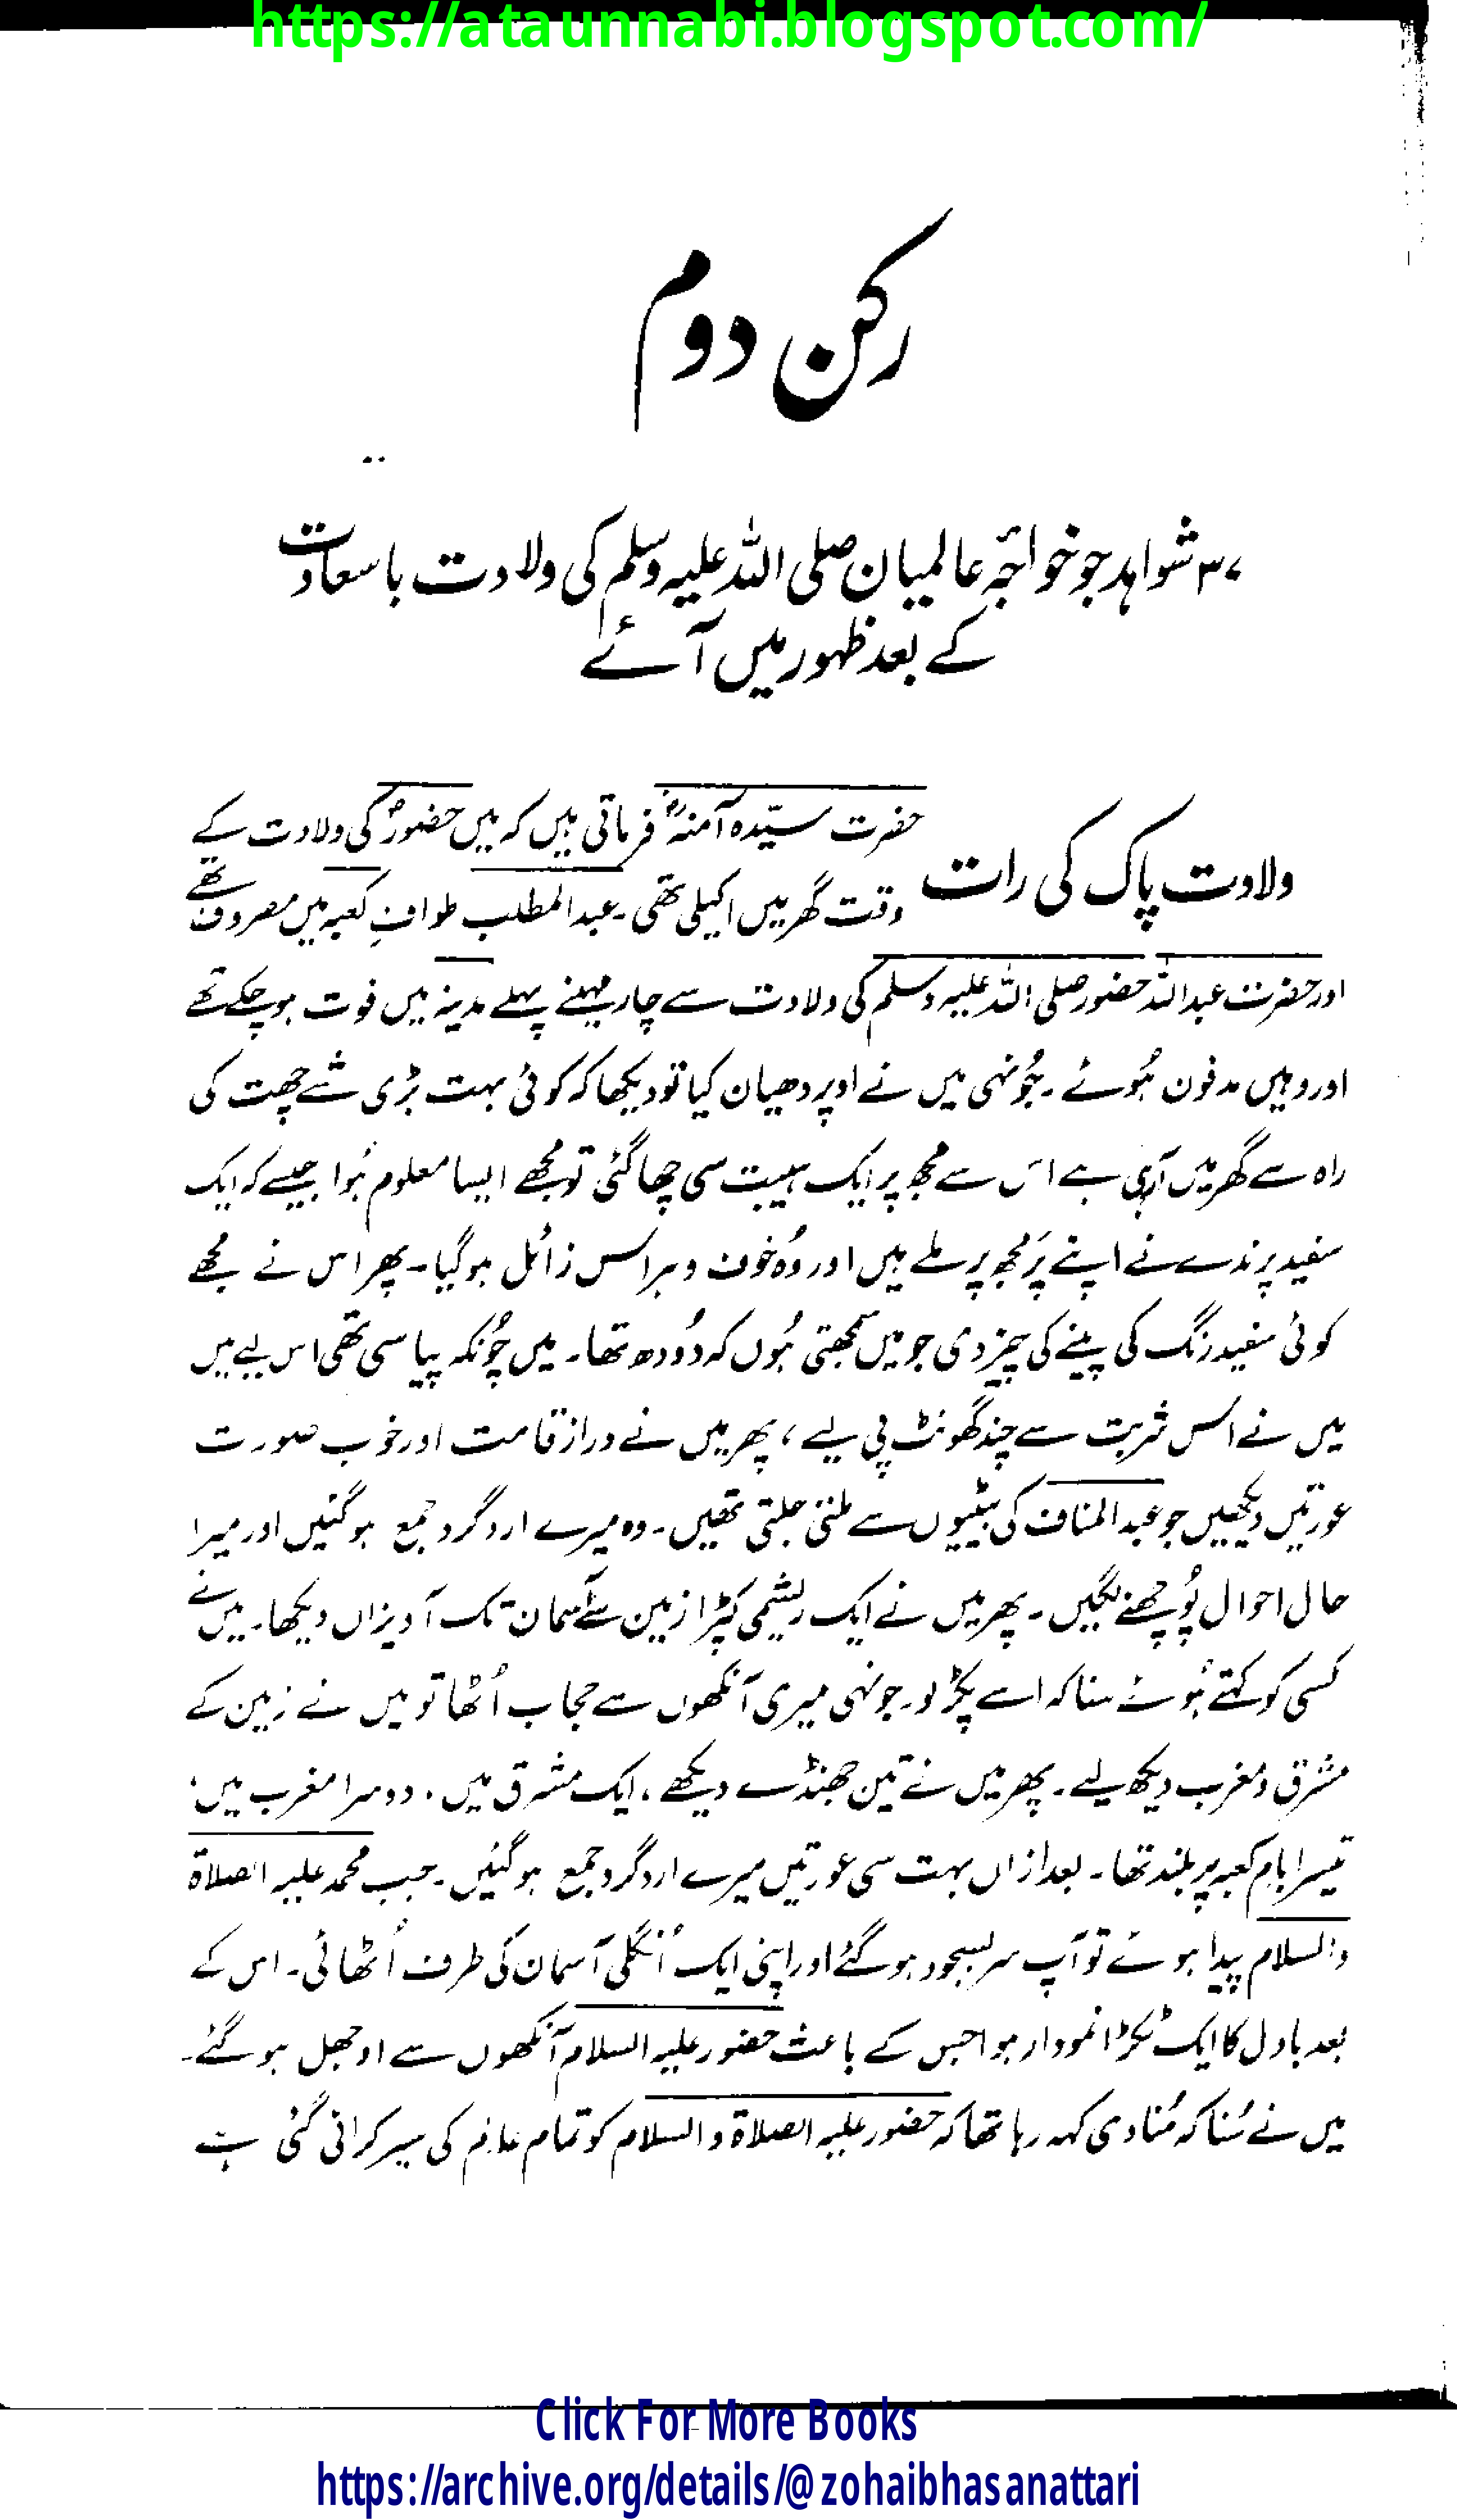 https://ataunnabi.blogspot.com/
رکن دوم
۳۷ شواہد جو خواجۂ عالمیان صلی اللہ علیہ وسلم کی ولادت باسعادت
کے بعد ظہور میں آئے
ولادت پاک کی رات
حضرت سیّدہ آمنہؓ فرماتی ہیں کہ میں حضورؐ کی ولادت کے
وقت گھر میں اکیلی تھی۔ عبدالمطلب طوافِ کعبہ میں مصروف تھے
اور حضرت عبداللہ حضور صلی اللہ علیہ وسلم کی ولادت سے چار مہینے پہلے مدینہ میں فوت ہو چکے تھے
اور وہیں مدفون ہُوئے۔ جُونہی میں نے اوپر دھیان کیا تو دیکھا کہ کوئی بہت بڑی شے چھت کی
راہ سے گھر میں آرہی ہے اس سے مجھ پر ایک ہیبت سی چھا گئی تو مجھے ایسا معلوم ہُوا جیسے کہ ایک
سفید پرندے نے اپنے پَر مجھ پر ملے ہیں اور وُہ خوف و ہراس زائل ہوگیا۔ پھر اس نے مجھے
کوئی سفید رنگ کی پینے کی چیز دی جو میں سمجھتی ہُوں کہ دُودھ تھا۔ میں چُونکہ پیاسی تھی اس لیے میں
میں نے اس شربت سے چند گھونٹ پی لیے ، پھر میں نے دراز قامت اور خوب صورت
عورتیں دیکھیں جو عبدالمناف کی بیٹیوں سے ملتی جلتی تھیں۔ وہ میرے اردگرد جمع ہوگئیں اور میرا
حال احوال پُوچھنے لگیں۔ پھر میں نے ایک ریشمی کپڑا زمین سے آسمان تک آویزاں دیکھا۔ میں نے
کسی کو کہتے ہُوئے سنا کہ اسے پکڑ لو۔ جونہی میری آنکھوں سے حجاب اُٹھا تو میں نے زمین کے
مشرق و مغرب دیکھ لیے۔ پھر میں نے تین جھنڈے دیکھے ، ایک مشرق میں ، دوسرا مغرب میں ،
تیسرا بامِ کعبہ پر بلند تھا۔ بعد ازاں بہت سی عورتیں میرے اردگرد جمع ہوگئیں۔ جب محمد علیہ الصلاۃ
والسلام پیدا ہوئے تو آپ سربسجود ہوگئے اور اپنی ایک اُنگلی آسمان کی طرف اُٹھائی۔ اس کے
بعد بادل کا ایک ٹکڑا نمودار ہوا جس کے باعث حضور علیہ السلام آنکھوں سے اوجھل ہوگئے۔
میں نے سُنا کہ مُنادی کہہ رہا تھا کہ حضور علیہ الصلاۃ والسلام کو تمام عالم کی سیر کرائی گئی ہے
Click For More Books
https://archive.org/details/@zohaibhasanattari